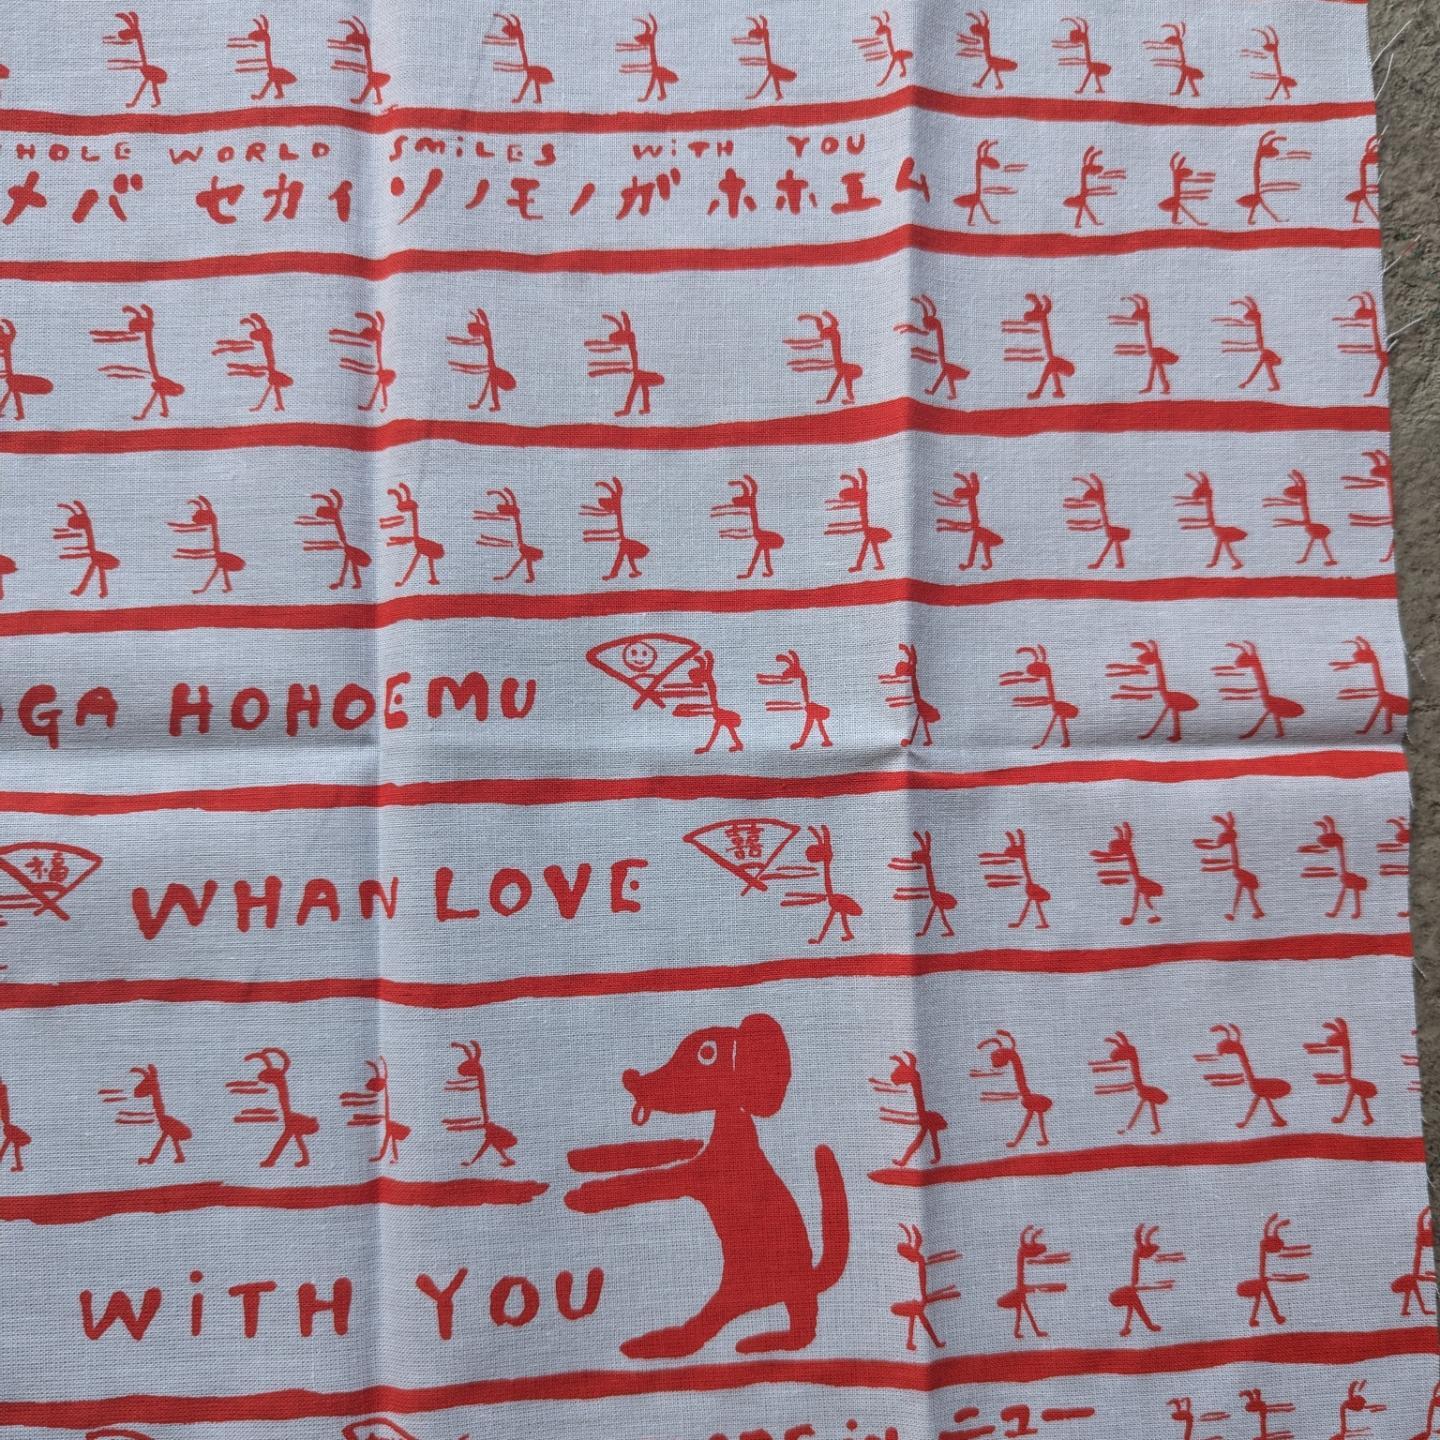 WORLD SMiLES WiTH YOU
メバ セカイソノモノガホホエム
GA HOHOEMU
福
WHAN LOVE
囍
WiTH YOU
iN ニュー